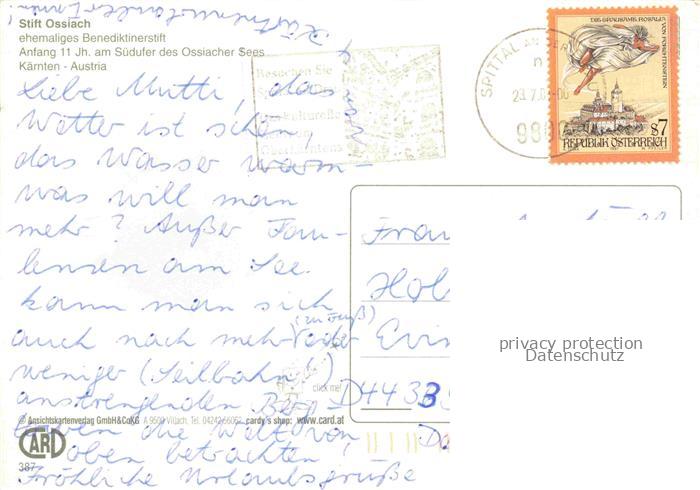 Stift Ossiach
ehemaliges Benediktinerstift
Anfang 11 Jh. am Südufer des Ossiacher Sees
Kärnten - Austria
Liebe Mutti, das
Wetter ist schön,
das Wasser warm -
was will man
mehr? Außer Fau-
lenzen am See
kann man sich
auch nach mehr oder
(zu Fuß)
weniger (Seilbahn!)
anstrengenden Berg-
die Welt von
oben betrachten!
Fröhliche Urlaubsgrüße
Besuchen Sie
Oberkärntens
SPITTAL AN DER
9800
DIE GRAUSAME ROSALIA
VON FORCHTENSTEIN
S7
REPUBLIK ÖSTERREICH
Frau
Hol
D 44 3
privacy protection
Datenschutz
click me!
© Ansichtskartenverlag GmbH&CoKG A 9500 Villach, Tel. 04242-66052 cardy's shop: www.card.at
CARD
387